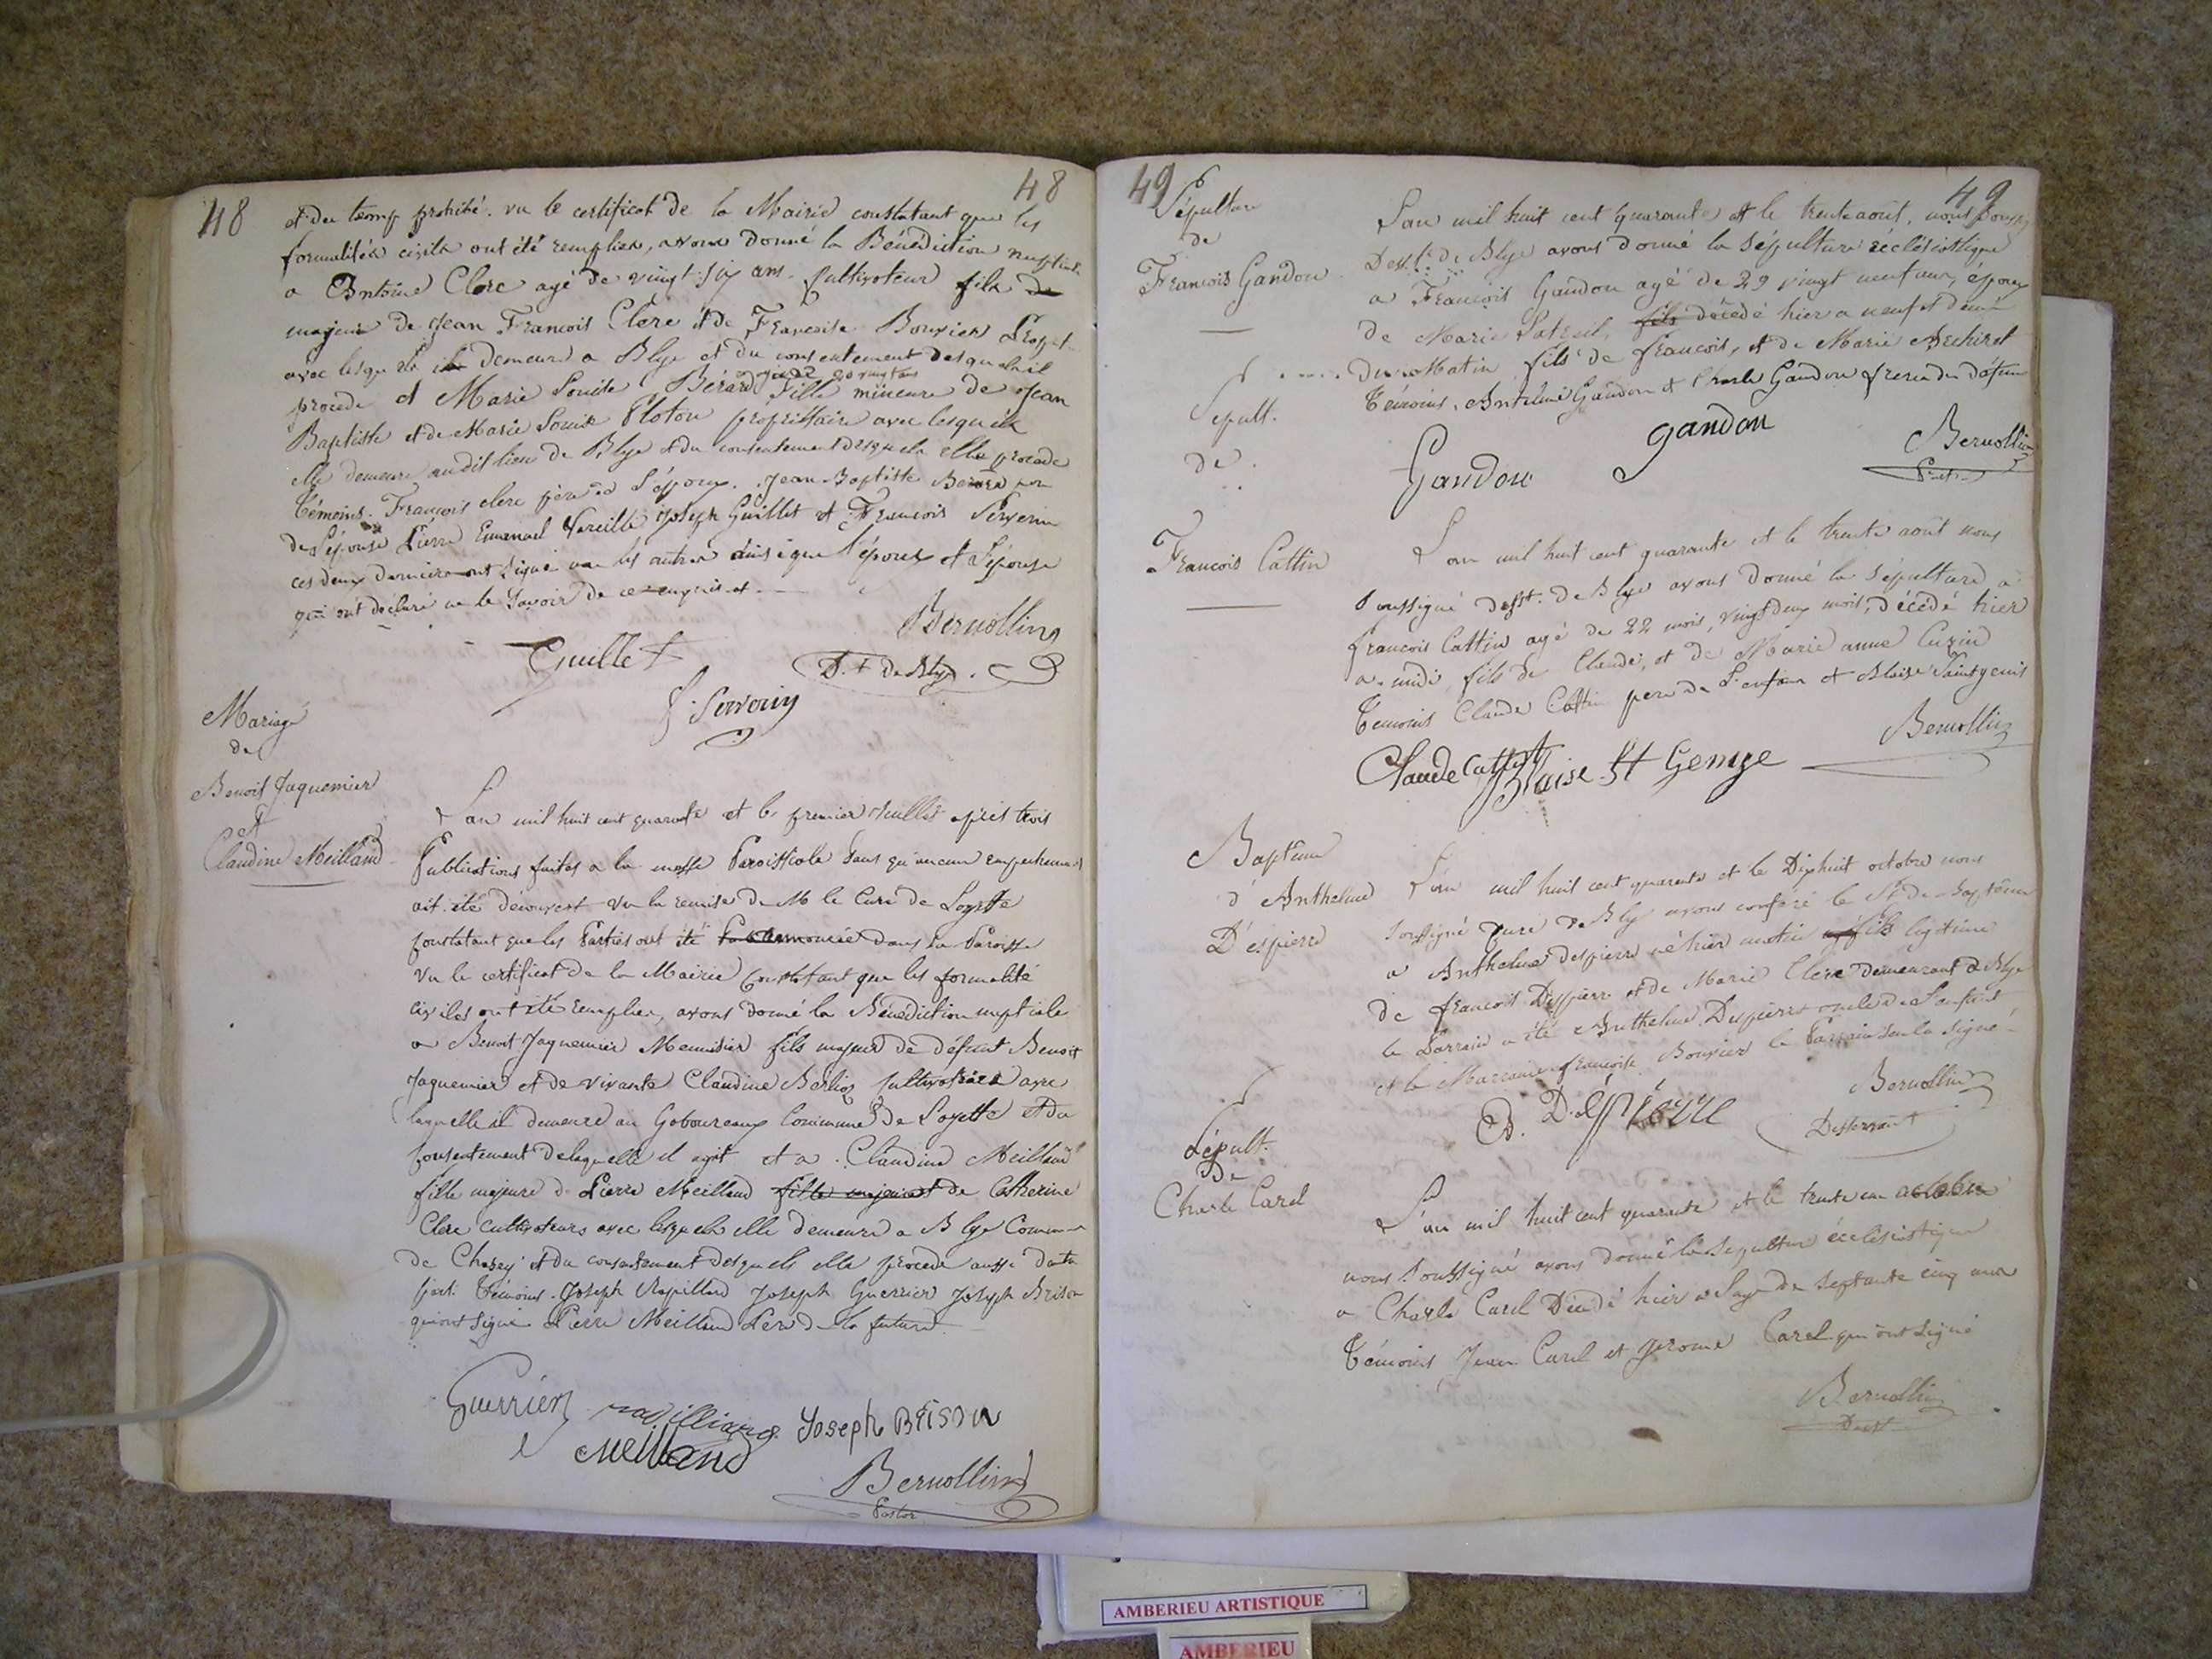 48
48
et du temp prohibé. vu le certificat de la Mairie constatant que les
formalités civiles ont été remplies, avons donné la Bénédiction nuptiale
a Antoine Clerc agé de vingt six ans cultivateur fils de
majeur de Jean Francois Clerc et de Francoise Bouvier
avec lesquels il demeure a Blye et du consentement desquels il
procede et Marie Louise Bérard agée de 20 vingt ans fille mineure de Jean
Baptiste et de Marie Louise Ploton propriétaire avec lesquels
elle demeure audit lieu de Blye et du consentement desquels elle procede
Témoins. Francois clerc père de l'époux. Jean Baptiste Bérard père
de l'épouse Pierre Emanuel Joseph Guillet et Francois Servenin
ces deux derniers ont signé non les autres ainsi que l'époux et l'épouse
qui ont déclaré ne le savoir de ce enquis et
Bernollin
Guillet
D.t de Blye.
Mariage
de
Benoit Jaquemier
et
Claudine Meilland
L'an mil huit cent quarante et le premier Juillet après trois
Publications faites a la messe Paroissiale sans qu'aucun empechement
ait été decouvert vu la remise de M le Curé de Loyette
constatant que les Parties ont été annoncée dans la Paroisse
vu le certificat de la Mairie Constatant que les formalité
civiles ont été remplies, avons donné la Bénédiction nuptiale
a Benoit Jaquemier Menuisier fils majeur de défunt Benoit
Jaquemier et de vivante Claudine Berlioz cultivatrice avec
laquelle il demeure au Gaboureaux Commune de Loyette et du
consentement delaquelle il agit et a Claudine Meilland
fille majeure de Pierre Meilland fille majeure et de Catherine
Clerc cultivateurs avec lesquels elle demeure a Blye Commune
de Chazey et du consentement desquels elle procede aussi d'autre
part. Témoins. Joseph Rapilland Joseph Guerrier Joseph Brison
qui ont signé Pierre Meilland Père de la future
Guerrier
Joseph Brison
Meilland
Bernollin
Pastor
49
49
Sépulture
de
Francois Gandon
L'an mil huit cent quarante et le trente août, nous soussigné
Dess.t de Blye avons donné la sépulture écclésiastique
a Francois Gandon agé de 29 vingt neuf ans, époux
de Marie fils décédé hier a neuf et demi
du Matin fils de francois, et de Marie
Témoins. Anthelme Gandon et Charle Gandon freres du défunt
Gandon
gandon
Bernollin
Sepult.
de
Francois Cattin
L'an mil huit cent quarante et le trente août nous
soussigné desst. de Blye avons donné la sépulture a
francois Cattin agé de 22 mois, vingt deux mois, décédé hier
a midi, fils de Claude, et de Marie anne Cuzin
Témoins Claude Cattin pere de l'enfant et Blaise Saintgenis
Bernollin
Claude Cattin
Blaise St Genige
Baptême
d'Anthelme
D'éspierre
L'an mil huit cent quarante et le Dixhuit octobre nous
soussigné curé de Blye avons conféré le St. de Baptême
a Anthelme despierre né hier matin fils légitime
de francois Despierre et de Marie Clerc demeurant a Blye
le Parrain a été Anthelme Despierre oncle de L'enfant
et la Marraine francoise Bouvier le Parrain seul a signé
Bernollin
Desservant
Sépult.
De
Charle Carel
L'an mil huit cent quarante et le trente un octobre
nous soussigné avons donné la sépulture écclésiastique
a Charle Carel Décédé hier a l'age de septante cinq ans
Témoins Jean Carel et Jérome Carel qui ont signé
Bernollin
Desst
AMBERIEU ARTISTIQUE
AMBERIEU